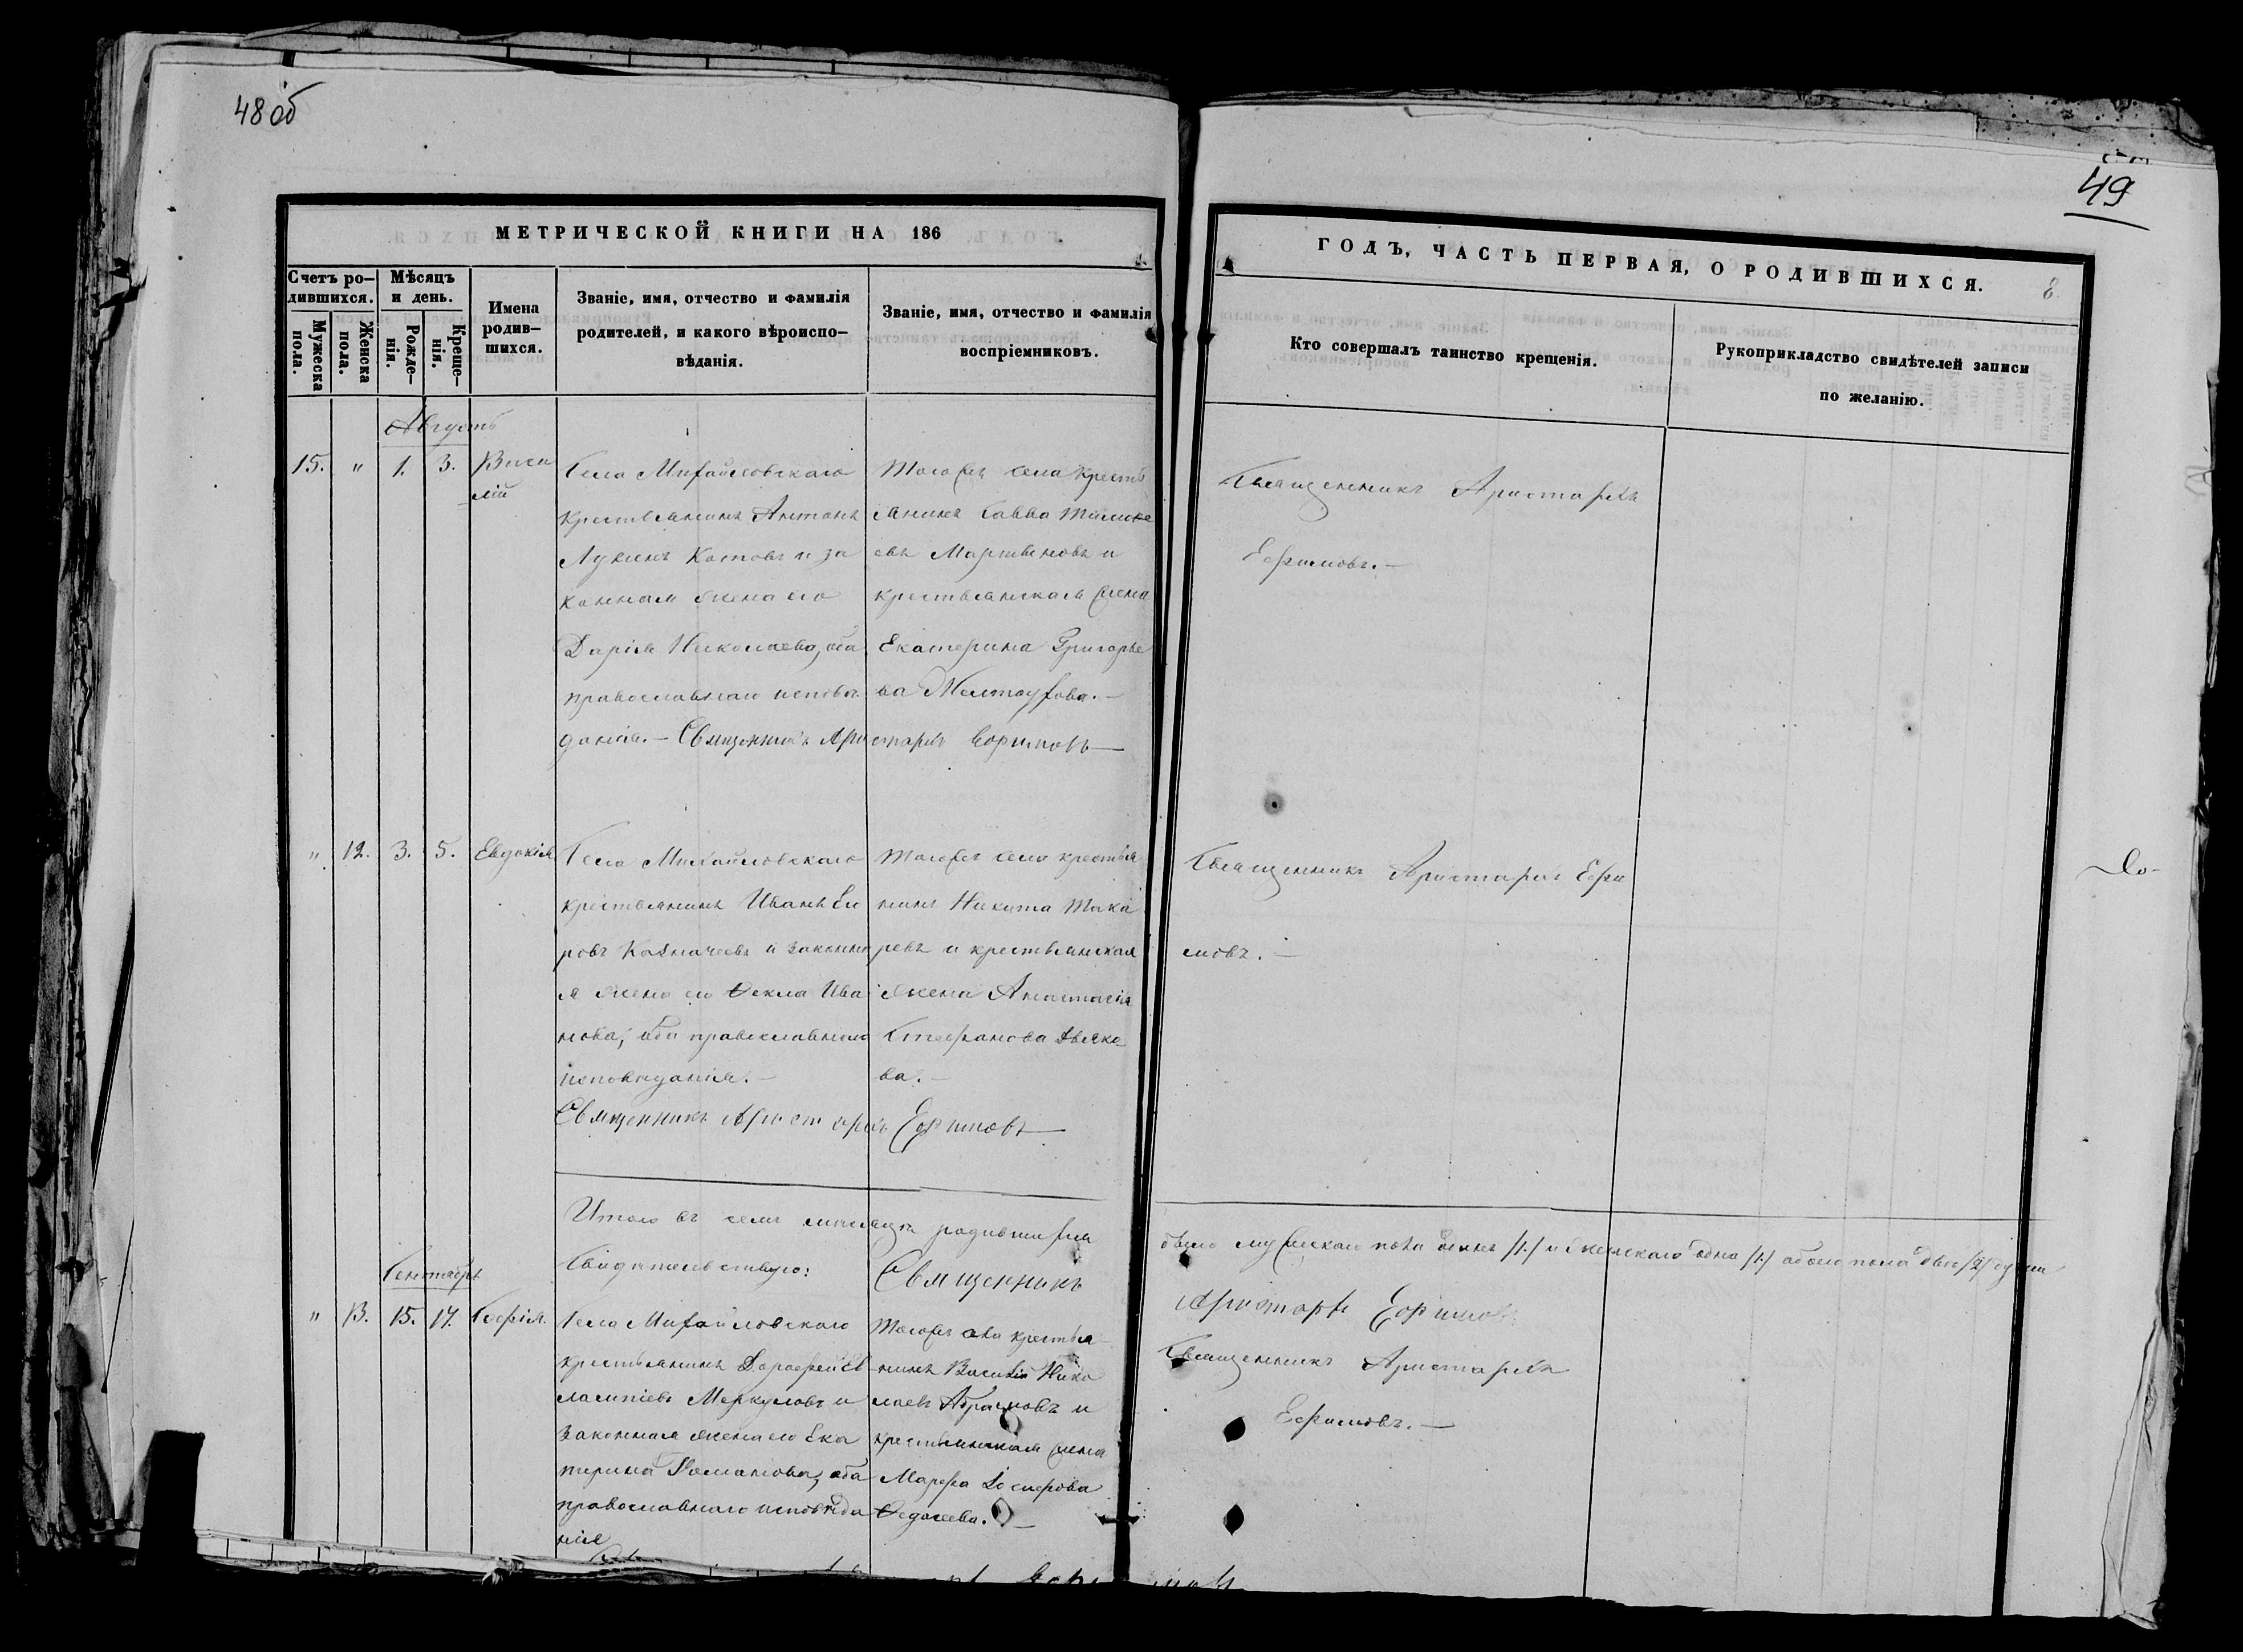 48 об
49
МЕТРИЧЕСКОЙ КНИГИ НА 186
ГОДЪ, ЧАСТЬ ПЕРВАЯ, О РОДИВШИХСЯ.
8
Счетъ ро-
дившихся.
Мужеска
пола.
Женска
пола.
Мѣсяцъ
и день.
Рожде-
нія.
Креще-
нія.
Имена
родив-
шихся.
Званіе, имя, отчество и фамилія
родителей, и какого вѣроиспо-
вѣданія.
Званіе, имя, отчество и фамилія
воспріемниковъ.
Кто совершалъ таинство крещенія.
Рукоприкладство свидѣтелей записи
по желанію.
Августъ
15. " 1. 3. Васи
лій
Села Михайловскаго
крестьянинъ Антонъ
Лукинъ Котовъ и за
конная жена его
Дарія Николаева, оба
православнаго исповѣ
данія.—
Тогожъ села кресть
янинъ Савва Тимофе
евъ Мартыновъ и
крестьянская жена
Екатерина Григорье
ва Желтоухова.—
Священникъ Аристархъ Ефимовъ—
Священникъ Аристархъ
Ефимовъ.—
" 12. 3. 5. Евдокія
Села Михайловскаго
крестьянинъ Иванъ
ровъ Казначеевъ и законна
я жена его Ѳекла Ива
нова, оба православнаго
исповѣданія.—
Тогожъ села крестья
нинъ Никита Мака
ревъ и крестьянская
жена Анастасія
Стефанова
ва.—
Священникъ Аристархъ Ефимовъ—
Священникъ Аристархъ Ефи
мовъ.—
До-
Итого въ семъ мѣсяцѣ родившихся
было мужескаго пола одинъ /1/ и женскаго одна /1/ обоего пола двѣ /2/ души
Свидѣтельствую: Священникъ
Аристархъ Ефимовъ
Сентябрь
" 13. 15. 17. Софія.
Села Михайловскаго
крестьянинъ Дорофей Ев
лампіевъ Меркуловъ и
законная жена его Ека
терина Романова, оба
православнаго исповѣда
нія
Тогожъ села крестья
нинъ Василій Нико
лаевъ Абрамовъ и
крестьянская жена
Марфа
Ѳедосеева.—
Священникъ Аристархъ
Ефимовъ.—